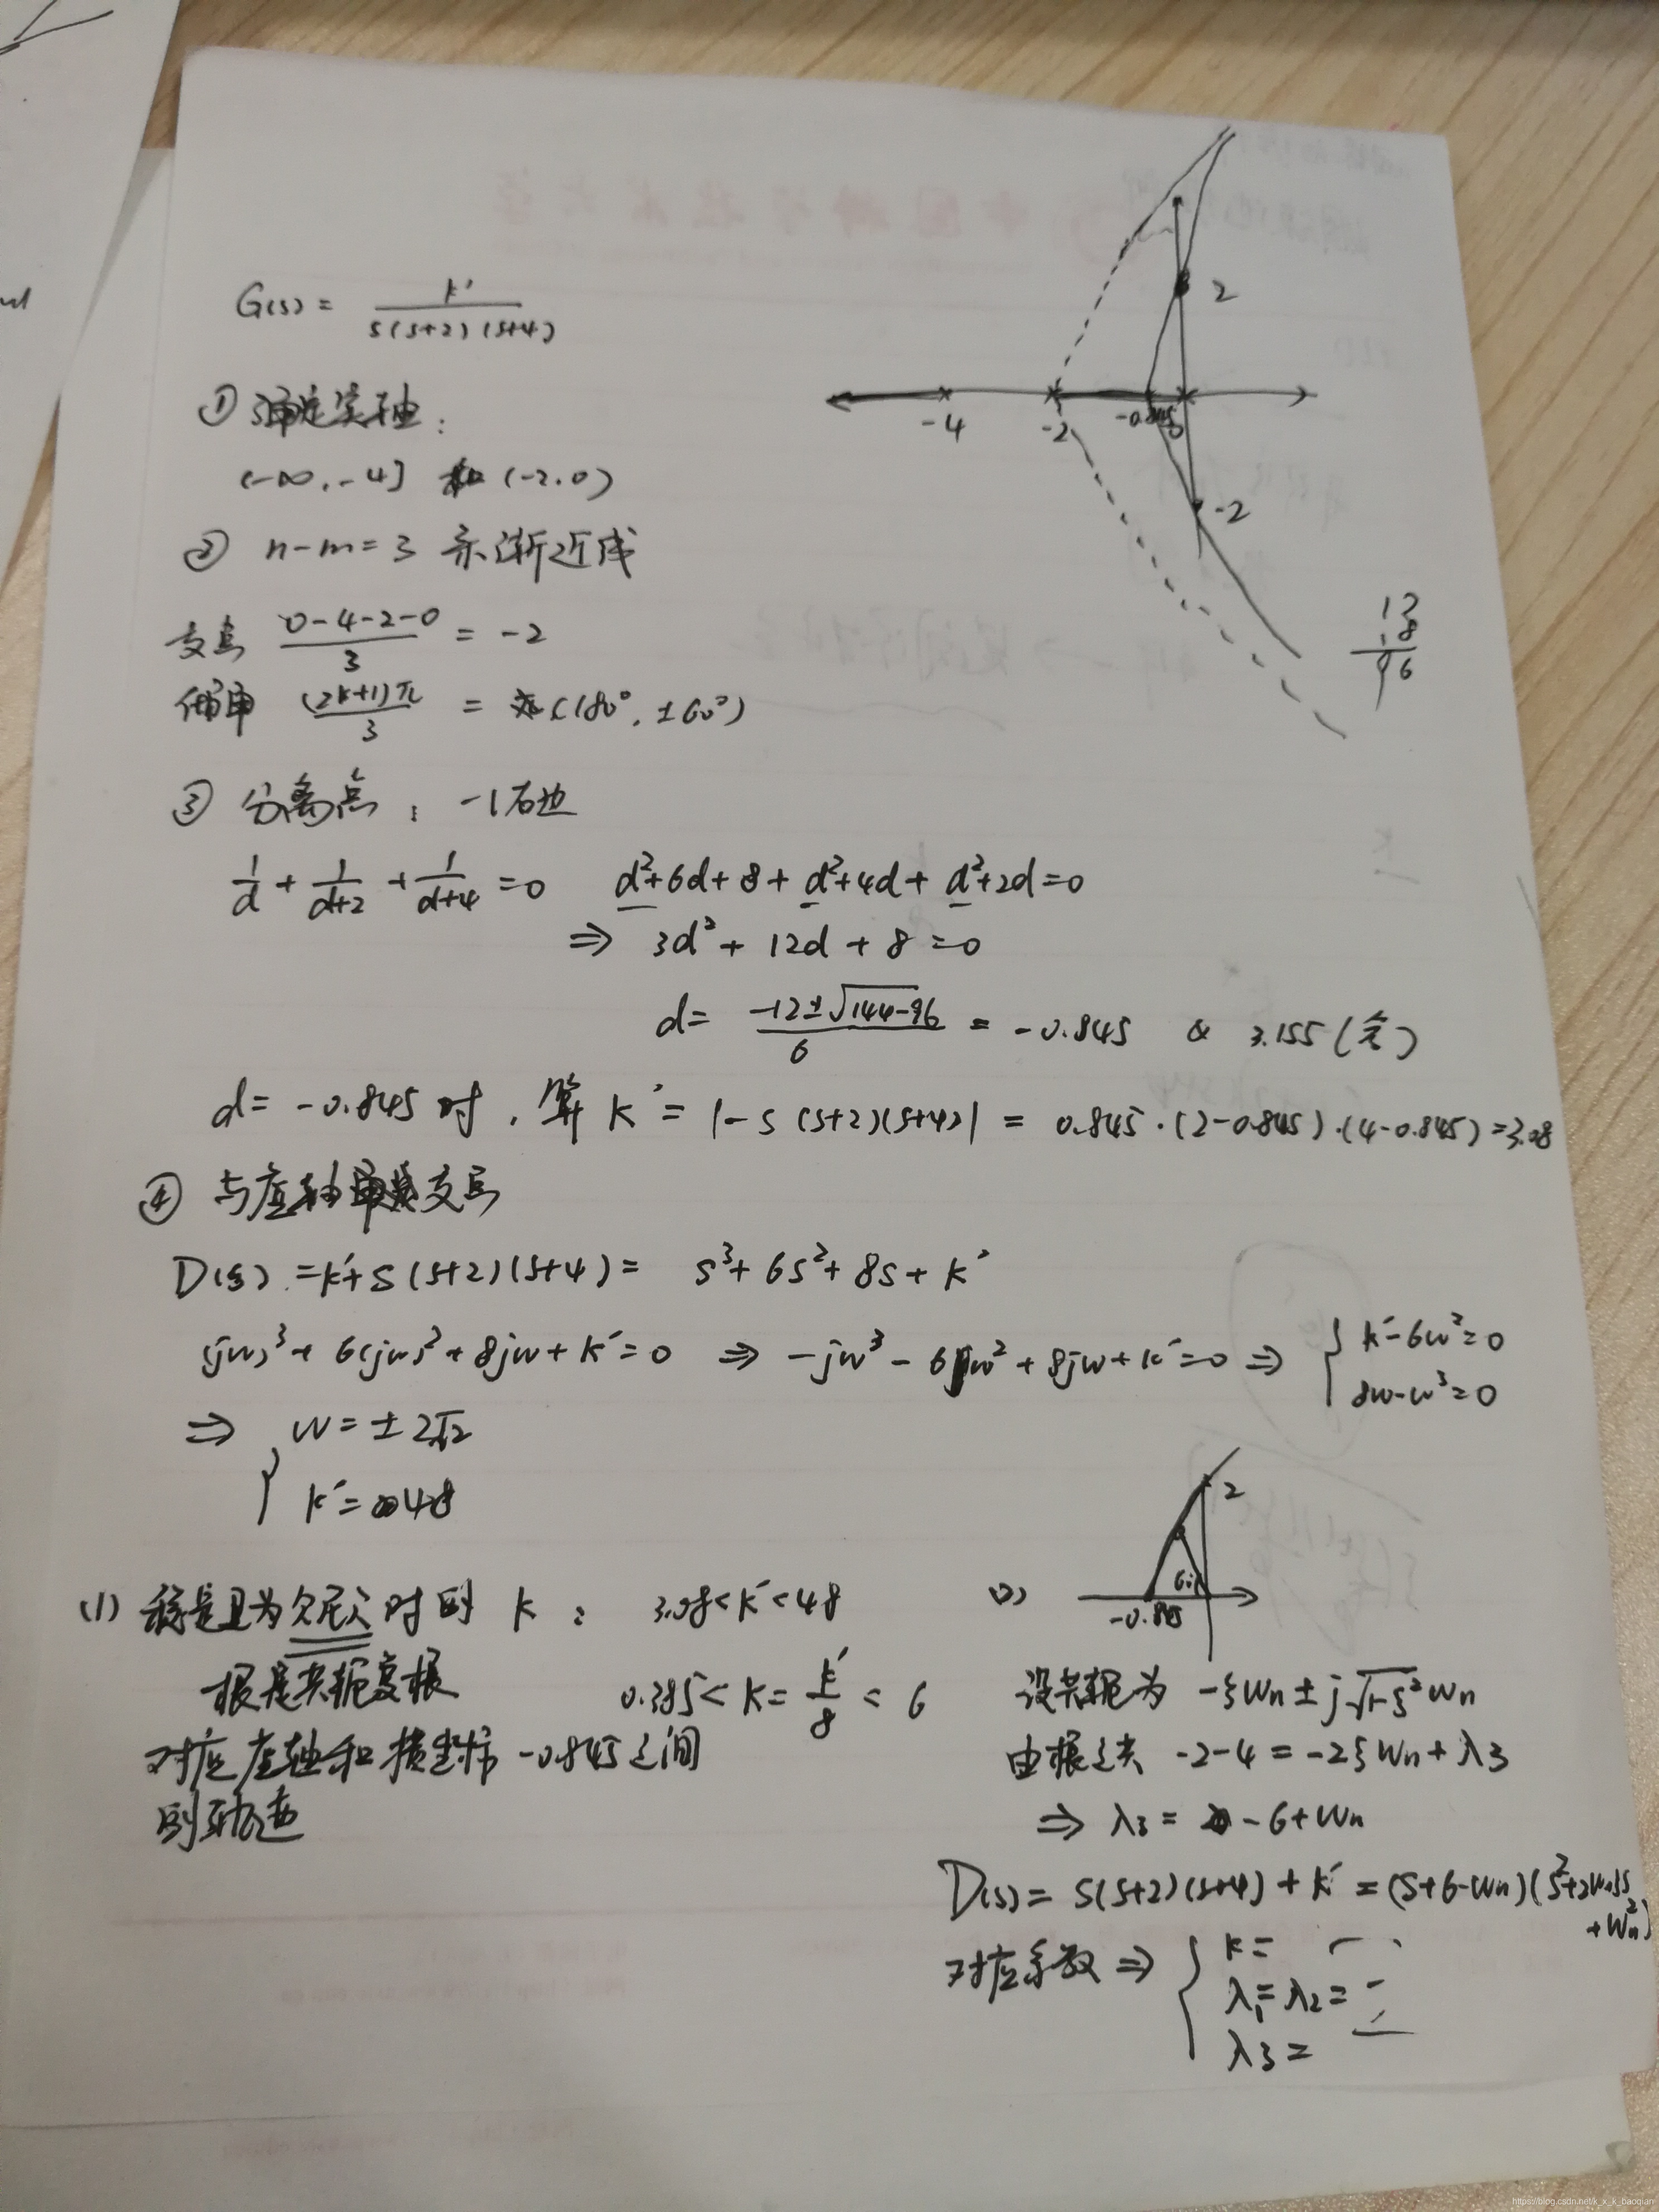 G(s) = k' / s(s+2)(s+4)
① 确定实轴:
(-∞, -4] 和 (-2.0)
② n-m=3 条渐近线
交点 0-4-2-0 / 3 = -2
倾角 (2k+1)π / 3 = (180°, ±60°)
③ 分离点: -1右边
1/d + 1/d+2 + 1/d+4 =0 d²+6d+8+d²+4d+d²+2d=0
⇒ 3d²+12d+8=0
d= -12±√144-96 / 6 = -0.845 & 3.155(舍)
d= -0.845 时, 算 k' = |-s(s+2)(s+4)| = 0.845·(2-0.845)·(4-0.845)=3.08
④ 与虚轴交点
D(s) =k'+s(s+2)(s+4)= s³+6s²+8s+k'
(jw)³+6(jw)²+8jw+k'=0 ⇒ -jw³-6w²+8jw+k'=0 ⇒ { k'-6w²=0
8w-w³=0
⇒ { w=±2√2
k'=48
(1) 稳定且为欠阻尼时的 k: 3.08<k'<48
根是共轭复根 0.385<k=k'/8<6
对应虚轴和横坐标 -0.845之间
的轨迹
2
-4
-2
0
-2
12
8
96
(2)
2
-0.845
设共轭为 -ξwn±j√1-ξ²wn
由根之和 -2-4=-2ξwn+λ3
⇒ λ3= -6+wn
D(s)= s(s+2)(s+4)+k' =(s+6-wn)(s²+2wnξs
+wn²)
对应系数 ⇒ { k=
λ1=λ2=
λ3=
https://blog.csdn.net/k_x_k_baoqian